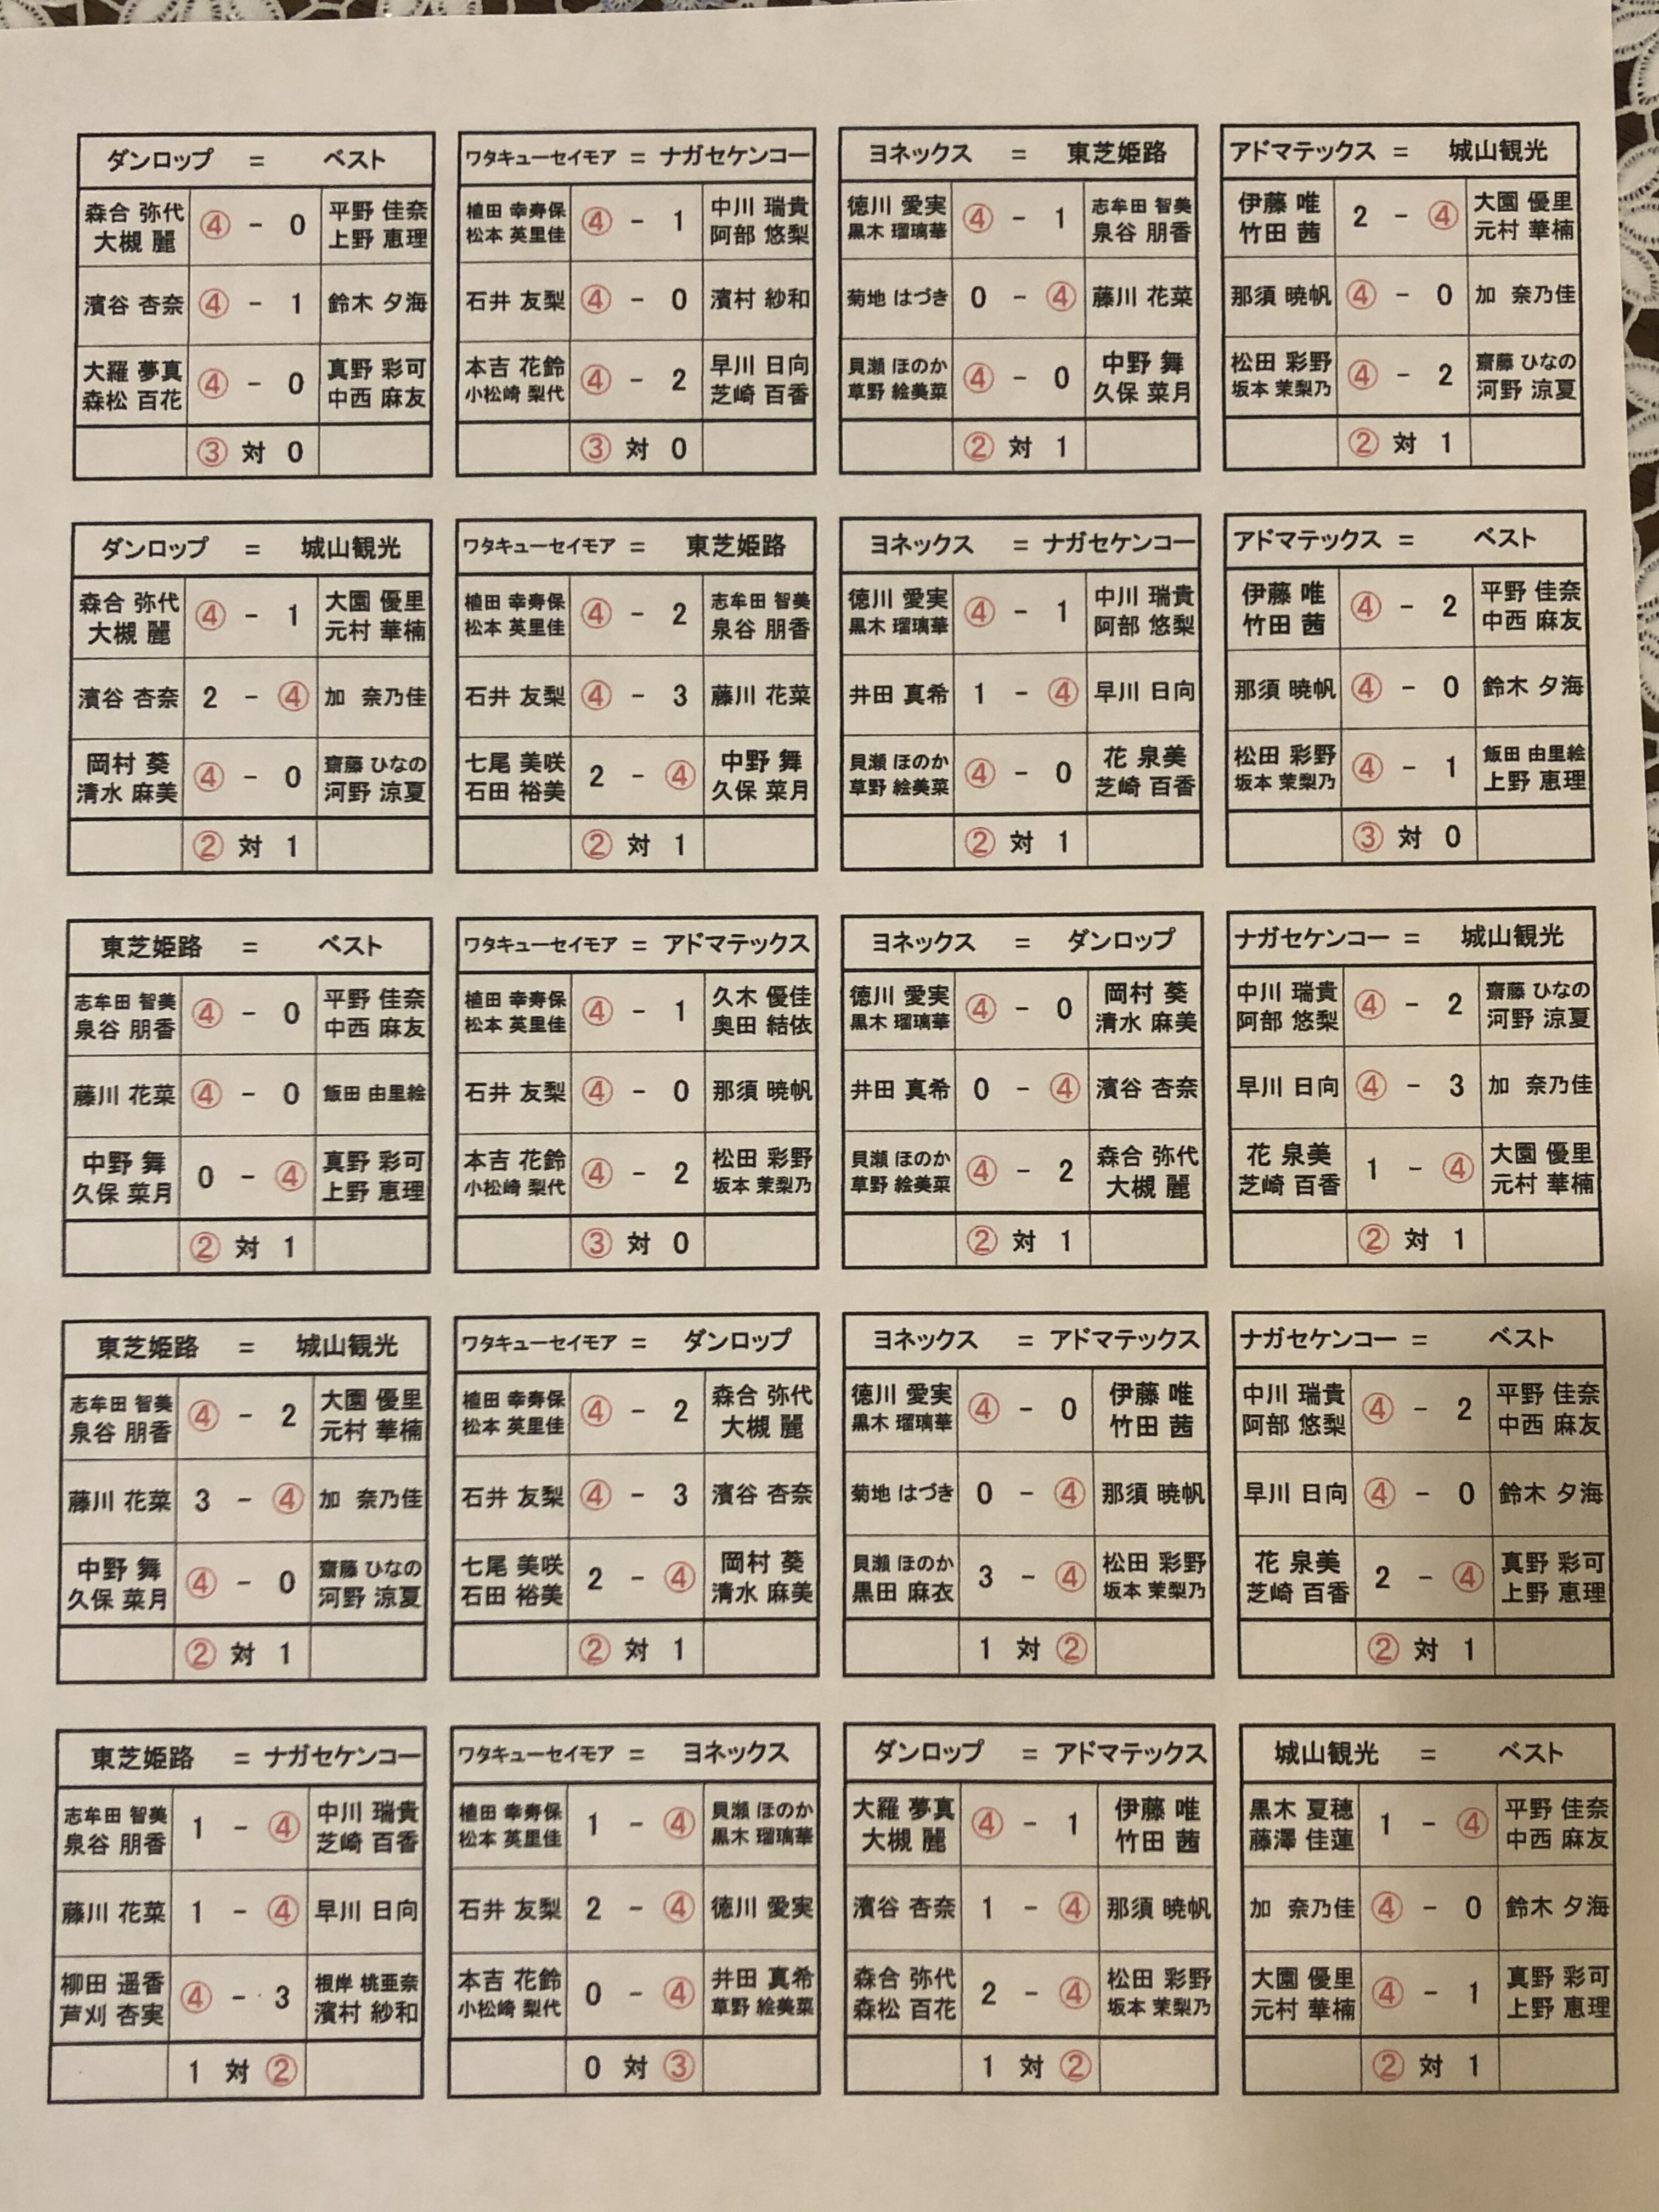 ダンロップ = ベスト
森合 弥代 ④ - 0 平野 佳奈
大槻 麗 上野 恵理
濱谷 杏奈 ④ - 1 鈴木 夕海
大羅 夢真 ④ - 0 真野 彩可
森松 百花 中西 麻友
③ 対 0
ワタキューセイモア = ナガセケンコー
植田 幸寿保 ④ - 1 中川 瑞貴
松本 英里佳 阿部 悠梨
石井 友梨 ④ - 0 濱村 紗和
本吉 花鈴 ④ - 2 早川 日向
小松崎 梨代 芝崎 百香
③ 対 0
ヨネックス = 東芝姫路
徳川 愛実 ④ - 1 志牟田 智美
黒木 瑠璃華 泉谷 朋香
菊地 はづき 0 - ④ 藤川 花菜
貝瀬 ほのか ④ - 0 中野 舞
草野 絵美菜 久保 菜月
② 対 1
アドマテックス = 城山観光
伊藤 唯 2 - ④ 大園 優里
竹田 茜 元村 華楠
那須 暁帆 ④ - 0 加 奈乃佳
松田 彩野 ④ - 2 齋藤 ひなの
坂本 茉梨乃 河野 涼夏
② 対 1
ダンロップ = 城山観光
森合 弥代 ④ - 1 大園 優里
大槻 麗 元村 華楠
濱谷 杏奈 2 - ④ 加 奈乃佳
岡村 葵 ④ - 0 齋藤 ひなの
清水 麻美 河野 涼夏
② 対 1
ワタキューセイモア = 東芝姫路
植田 幸寿保 ④ - 2 志牟田 智美
松本 英里佳 泉谷 朋香
石井 友梨 ④ - 3 藤川 花菜
七尾 美咲 2 - ④ 中野 舞
石田 裕美 久保 菜月
② 対 1
ヨネックス = ナガセケンコー
徳川 愛実 ④ - 1 中川 瑞貴
黒木 瑠璃華 阿部 悠梨
井田 真希 1 - ④ 早川 日向
貝瀬 ほのか ④ - 0 花 泉美
草野 絵美菜 芝崎 百香
② 対 1
アドマテックス = ベスト
伊藤 唯 ④ - 2 平野 佳奈
竹田 茜 中西 麻友
那須 暁帆 ④ - 0 鈴木 夕海
松田 彩野 ④ - 1 飯田 由里絵
坂本 茉梨乃 上野 恵理
③ 対 0
東芝姫路 = ベスト
志牟田 智美 ④ - 0 平野 佳奈
泉谷 朋香 中西 麻友
藤川 花菜 ④ - 0 飯田 由里絵
中野 舞 0 - ④ 真野 彩可
久保 菜月 上野 恵理
② 対 1
ワタキューセイモア = アドマテックス
植田 幸寿保 ④ - 1 久木 優佳
松本 英里佳 奥田 結依
石井 友梨 ④ - 0 那須 暁帆
本吉 花鈴 ④ - 2 松田 彩野
小松崎 梨代 坂本 茉梨乃
③ 対 0
ヨネックス = ダンロップ
徳川 愛実 ④ - 0 岡村 葵
黒木 瑠璃華 清水 麻美
井田 真希 0 - ④ 濱谷 杏奈
貝瀬 ほのか ④ - 2 森合 弥代
草野 絵美菜 大槻 麗
② 対 1
ナガセケンコー = 城山観光
中川 瑞貴 ④ - 2 齋藤 ひなの
阿部 悠梨 河野 涼夏
早川 日向 ④ - 3 加 奈乃佳
花 泉美 1 - ④ 大園 優里
芝崎 百香 元村 華楠
② 対 1
東芝姫路 = 城山観光
志牟田 智美 ④ - 2 大園 優里
泉谷 朋香 元村 華楠
藤川 花菜 3 - ④ 加 奈乃佳
中野 舞 ④ - 0 齋藤 ひなの
久保 菜月 河野 涼夏
② 対 1
ワタキューセイモア = ダンロップ
植田 幸寿保 ④ - 2 森合 弥代
松本 英里佳 大槻 麗
石井 友梨 ④ - 3 濱谷 杏奈
七尾 美咲 2 - ④ 岡村 葵
石田 裕美 清水 麻美
② 対 1
ヨネックス = アドマテックス
徳川 愛実 ④ - 0 伊藤 唯
黒木 瑠璃華 竹田 茜
菊地 はづき 0 - ④ 那須 暁帆
貝瀬 ほのか 3 - ④ 松田 彩野
黒田 麻衣 坂本 茉梨乃
1 対 ②
ナガセケンコー = ベスト
中川 瑞貴 ④ - 2 平野 佳奈
阿部 悠梨 中西 麻友
早川 日向 ④ - 0 鈴木 夕海
花 泉美 2 - ④ 真野 彩可
芝崎 百香 上野 恵理
② 対 1
東芝姫路 = ナガセケンコー
志牟田 智美 1 - ④ 中川 瑞貴
泉谷 朋香 芝崎 百香
藤川 花菜 1 - ④ 早川 日向
柳田 遥香 ④ - 3 根岸 桃亜奈
芦刈 杏実 濱村 紗和
1 対 ②
ワタキューセイモア = ヨネックス
植田 幸寿保 1 - ④ 貝瀬 ほのか
松本 英里佳 黒木 瑠璃華
石井 友梨 2 - ④ 徳川 愛実
本吉 花鈴 0 - ④ 井田 真希
小松崎 梨代 草野 絵美菜
0 対 ③
ダンロップ = アドマテックス
大羅 夢真 ④ - 1 伊藤 唯
大槻 麗 竹田 茜
濱谷 杏奈 1 - ④ 那須 暁帆
森合 弥代 2 - ④ 松田 彩野
森松 百花 坂本 茉梨乃
1 対 ②
城山観光 = ベスト
黒木 夏穂 1 - ④ 平野 佳奈
藤澤 佳蓮 中西 麻友
加 奈乃佳 ④ - 0 鈴木 夕海
大園 優里 ④ - 1 真野 彩可
元村 華楠 上野 恵理
② 対 1